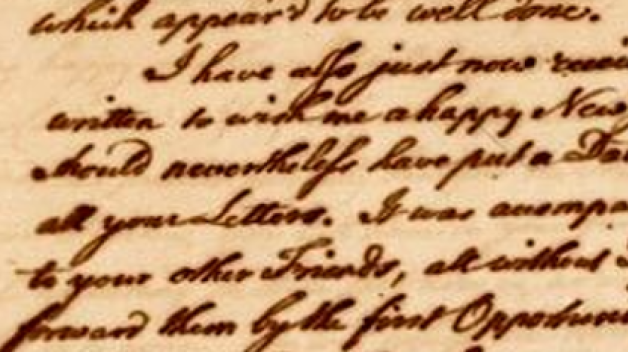 which appear'd to be well done.
I have also just now recei
written to wish me a happy New
should nevertheless have put a Da
all your Letters. It was accompa
to your other Friends, all without
forward them by the first Opportuni